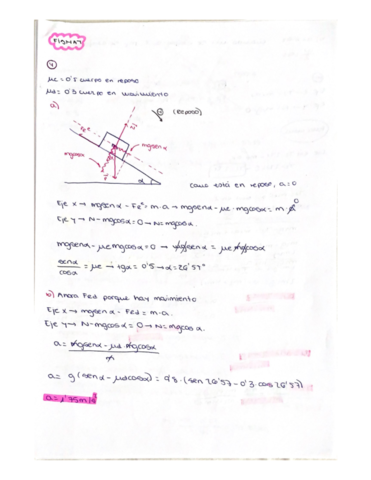 FISMAT
4
μe = 0'5 cuerpo en reposo
μd = 0'3 cuerpo en movimiento
a)
(Reposo)
N
mgsenα
mgcosα
P
α
como está en reposo, a=0
Eje x → mgsenα - Fe = m·a → mgsenα - μe·mgcosα = m·a 0
Eje Y → N - mgcosα = 0 → N = mgcosα.
mgsenα - μe mgcosα = 0 → mgsenα = μe mgcosα
senα/cosα = μe → tgα = 0'5 → α = 26'57°
b) Ahora Fed porque hay movimiento
Eje x → mgsenα - Fed = m·a.
Eje Y → N - mgcosα = 0 → N = mgcosα.
a = mgsenα - μd mgcosα / m
a = g(senα - μdcosα) = 9'8·(sen 26'57 - 0'3·cos 26'57)
a = 1'75 m/s²